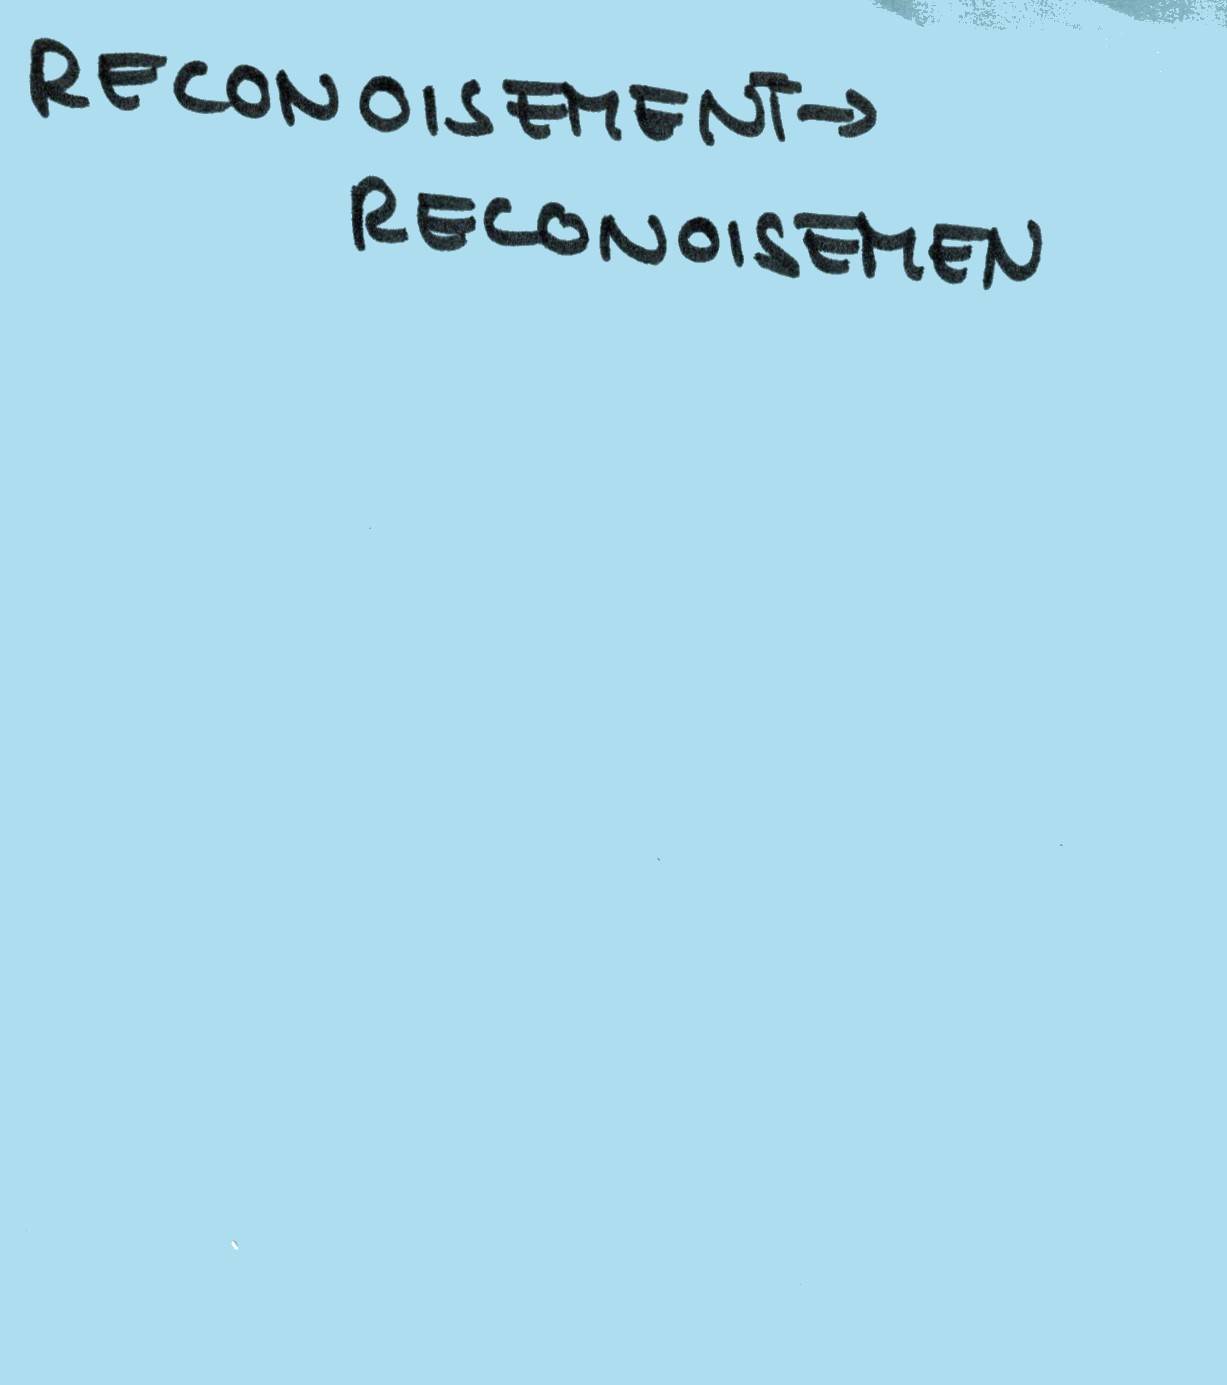 RECONOISEMENT→
RECONOISEMEN